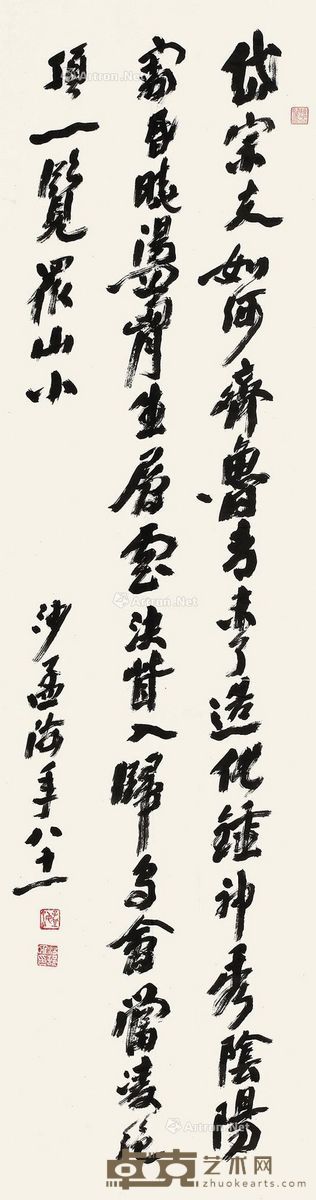 岱宗夫如何齊魯青未了造化鍾神秀陰陽
割昏曉盪胷生層雲決眥入歸鳥會當凌絕
頂一覽衆山小
沙孟海年八十一
Artron.Net
卓克艺术网
www.zhuokearts.com